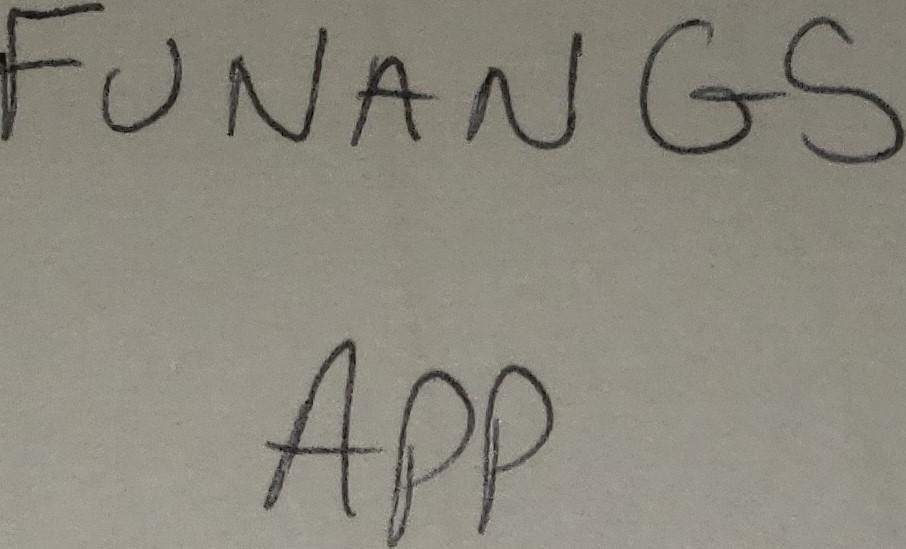 FUNANGS
APP